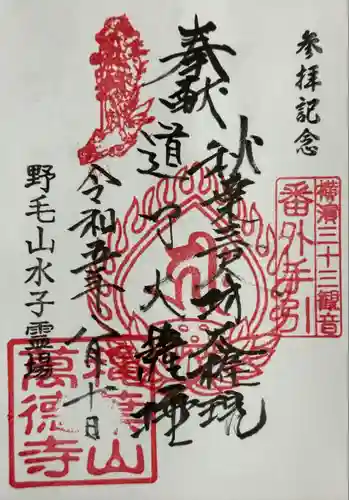 参拝記念
横濱三十三観音
番外手引
奉献
秋葉三尺坊大権現
道了大薩埵
令和五年八月十日
野毛山水子霊場
萬徳寺